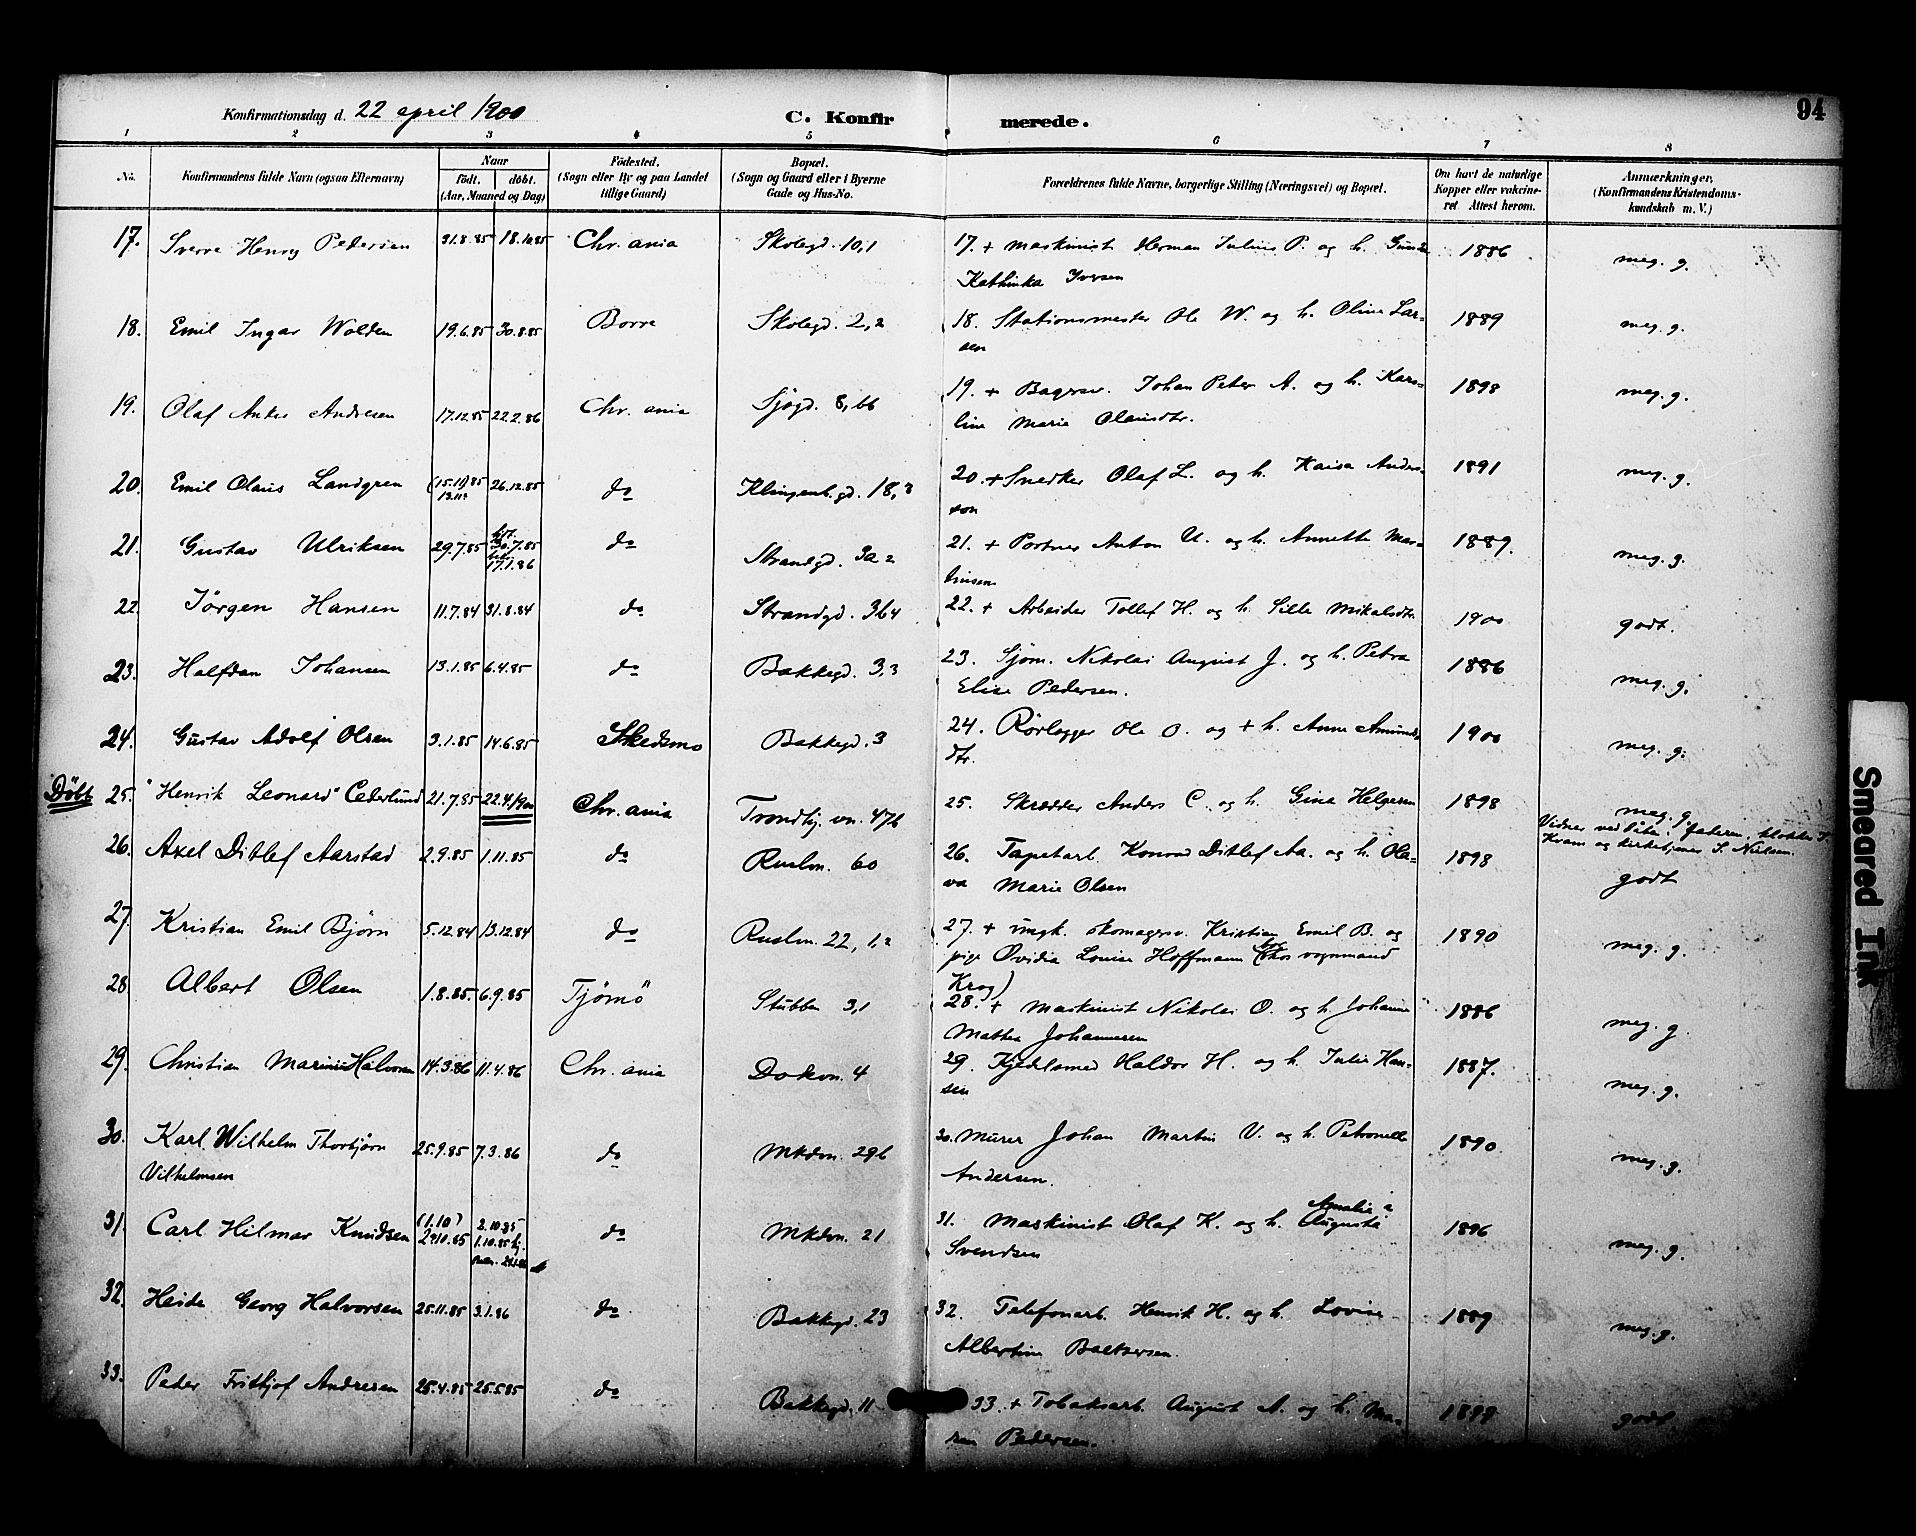 94
Konfirmationsdag d. 22 april 1900
C. Konfirmerede.
1 2 3 4 5 6 7 8
No. Konfirmandens fulde Navn (ogsaa Efternavn) Naar født. døbt. (Aar, Maaned og Dag) Fødested. (Sogn eller By og paa Landet tillige Gaard) Bopæl. (Sogn og Gaard eller i Byerne Gade og Hus-No. Forældrenes fulde Navne, borgerlige Stilling (Næringsvei) og Bopæl. Om havt de naturlige Kopper eller vakcineret Attest herom. Anmærkninger, (Konfirmandens Kristendomskundskab m. V.)
17. Sverre Henry Pedersen 31.8.85 18.10.85 Chr.ania Skolegd. 10,1 17. + maskinist Herman Julius P. og h. Gunda 1886 meg. g.
Kathinka Iversen
18. Emil Ingar Wolden 19.6.85 30.8.85 Borre Skolegd. 2,2 18. Stationsmester Ole W. og h. Oline Lar- 1889 meg. g.
sen
19. Olaf Anker Andresen 17.12.85 22.2.86 Chr.ania Sjøgd. 8, bb 19. + Bagersv. Johan Peter A. og h. Karo- 1898 meg. g.
line Marie Olausdtr.
20. Emil Olaus Landgren (15.11) 85 26.12.85 do Klingenb.gd. 18,3 20. + Snedker Olaf L. og h. Kaisa Anders- 1891 meg. g.
son
21. Gustav Ulriksen 29.7.85 30.7.85 do Strandgd. 3a 2 21. + Portner Anton U. og h. Annette Mar- 1889. meg. g.
17.1.86
tinsen
22. Jørgen Hansen 11.7.84 31.8.84 do Strandgd. 3b4 22. + Arbeider Tollef H. og h. Sille Mikalsdtr. 1900 godt.
23. Halfdan Johansen 13.1.85 6.4.85 do Bakkegd. 3,3 23. Sjøm. Nikolai August J. og h. Petra 1886 meg. g.
Elise Pedersen.
24. Gustav Adolf Olsen 3.1.85 14.6.85 Skedsmo Bakkegd. 3 24. Rørlegger Ole O. og + h. Anne Amunds- 1900 meg. g.
dtr.
Döbt 25. "Henrik Leonard" Cederlund 21.7.85 22.4.1900 Chr.ania Trondhj.vn. 47b 25. Skrædder Anders C. og h. Gina Helgesen 1898 meg. g.
Vidner ved dåben: faderen, klokker S.
Kvam og kirketjener S. Nielsen.
26. Axel Ditlef Aarstad 2.9.85 1.11.85 do Ruslvn. 60 26. Tapetarb. Konrad Ditlef Aa. og h. Ola- 1898 godt
va Marie Olsen
27. Kristian Emil Bjørn 5.12.84 13.12.84 do Ruslvn. 22, 1,2 27. + ungk. skomagersv. Kristian Emil B. og 1890 meg. g.
pige Ovidia Louise Hoffmann (hos vognmand
Krog)
28 Albert Olsen 1.8.85. 6.9.85 Tjømö Stubben 3,1 28. + maskinist Nikolai O. og h. Johanne 1886 meg. g.
Mathea Johannesen
29. Christian Marinius Halvorsen 14.3.86 11.4.86 Chr.ania Dokvn. 4 29. Kjedelsmed Haldor H. og h. Julie Han- 1887. meg. g.
sen
30. Karl Wilhelm Thorbjörn 25.9.85 7.3.86 do Mkdvn. 29b 30. Murer Johan Martin V. og h. Petronelle 1890 meg. g.
Vilhelmsen Andersen.
31. Carl Hilmar Knudsen (1.10) 2.10.85 do Mkdvn. 21 31. maskinist Olaf K. og h. Amalie Augusta 1896 meg. g.
Svendsen
32. Heide Georg Halvorsen 25.11.85 3.1.86 do Bakkegd. 23 32. Telefonarb. Henrik H. og h. Lovise 1889 meg. g.
Albertine Baltzersen.
33. Peter Fritjof Andresen 25.4.85 25.5.85 do Bakkegd. 11 33. + Tobaksarb. August A. og h. Ma- 1899 godt.
ren Pedersen.
Smeared Ink